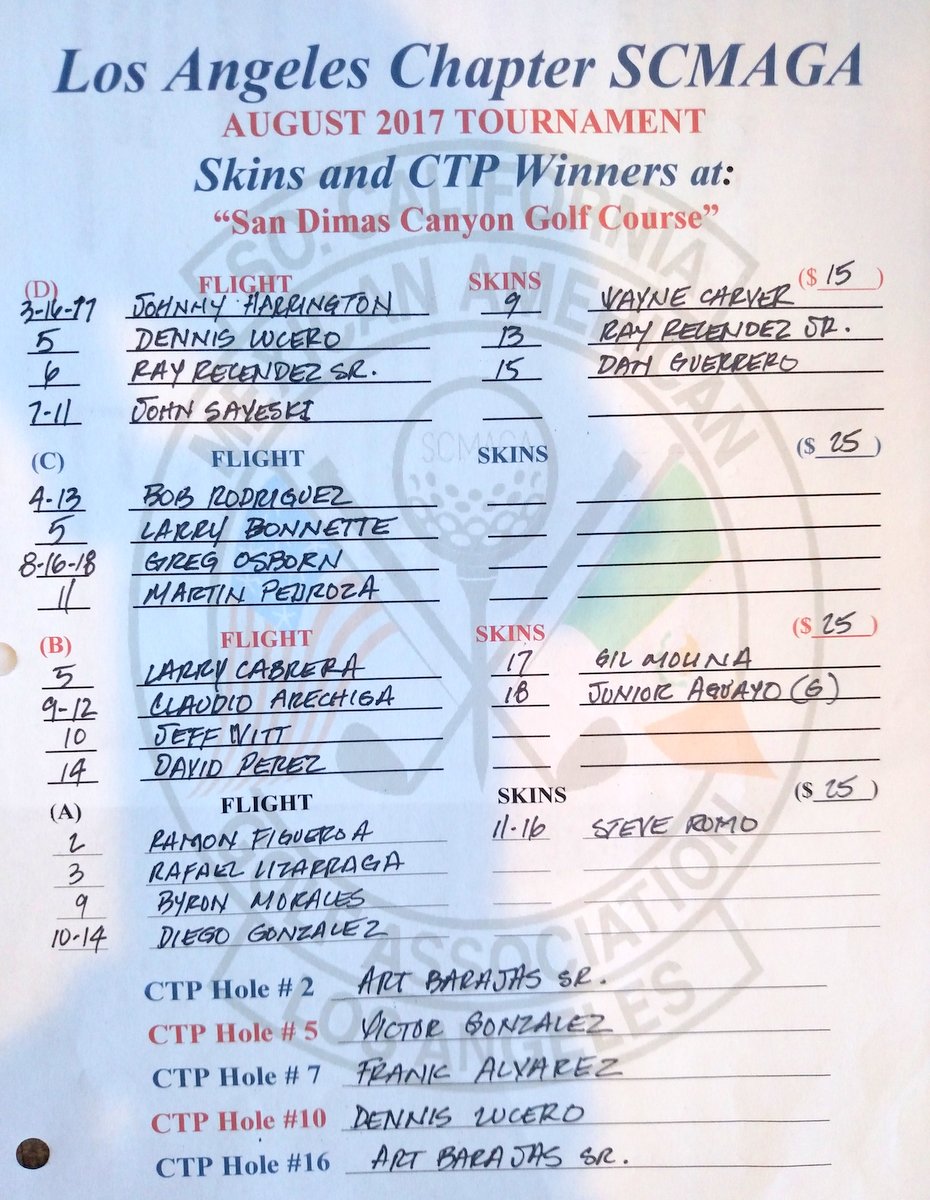 Los Angeles Chapter SCMAGA
AUGUST 2017 TOURNAMENT
Skins and CTP Winners at:
“San Dimas Canyon Golf Course”
(D) FLIGHT SKINS ($ 15 )
3-16-17 JOHNNY HARRINGTON 9 WAYNE CARVER
5 DENNIS LUCERO 13 RAY RECENDEZ JR.
6 RAY RECENDEZ SR. 15 DAN GUERRERO
7-11 JOHN SAYESKI
(C) FLIGHT SKINS ($ 25 )
4-13 BOB RODRIGUEZ
5 LARRY BONNETTE
8-16-18 GREG OSBORN
11 MARTIN PEDROZA
(B) FLIGHT SKINS ($ 25 )
5 LARRY CABRERA 17 GIL MOLINA
9-12 CLAUDIO ARECHIGA 18 JUNIOR AGUAYO (G)
10 JEFF WITT
14 DAVID PEREZ
(A) FLIGHT SKINS ($ 25 )
2 RAMON FIGUEROA 11-16 STEVE ROMO
3 RAFAEL LIZARRAGA
9 BYRON MORALES
10-14 DIEGO GONZALEZ
CTP Hole # 2 ART BARAJAS SR.
CTP Hole # 5 VICTOR GONZALEZ
CTP Hole # 7 FRANK ALVAREZ
CTP Hole #10 DENNIS LUCERO
CTP Hole #16 ART BARAJAS SR.
SO. CALIFORNIA
MEXICAN AMERICAN
SCMAGA
ASSOCIATION
LOS ANGELES